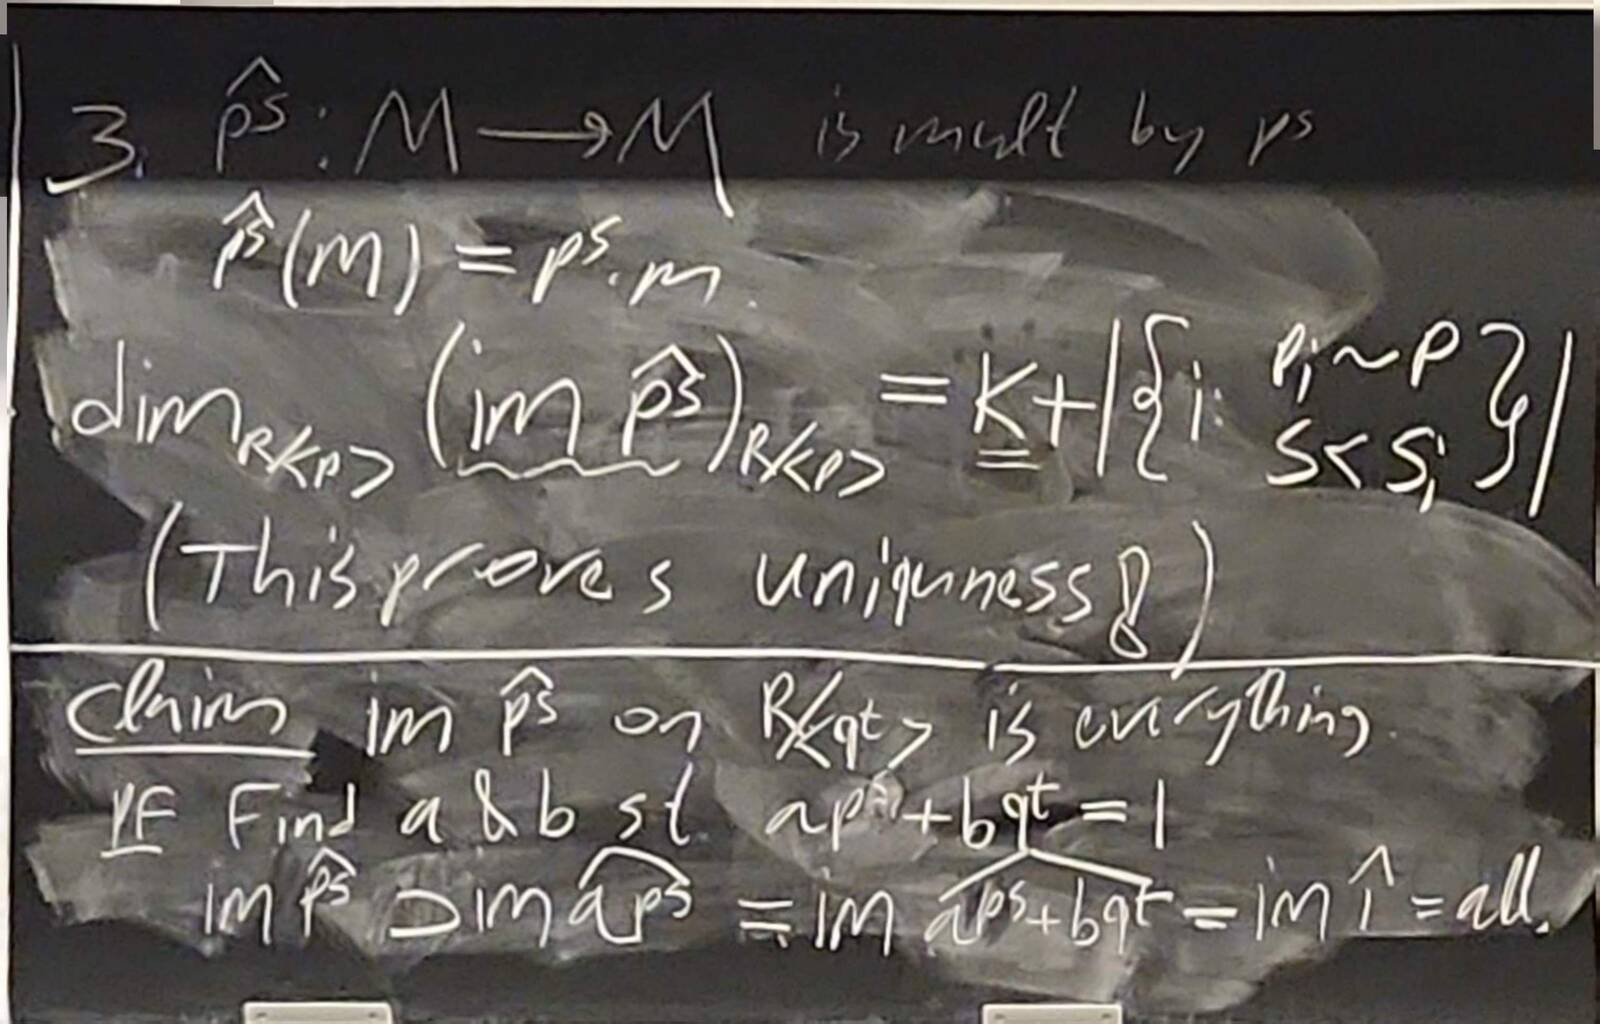 3. p̂ˢ : M → M is mult by pˢ
p̂ˢ(m) = pˢ·m.
dim_{R/<p>} (im p̂ˢ)_{R/<p>} = K + |{i: p_i ~ p s < s_i}|
(This proves uniquness!)
Claim im p̂ˢ on R/<qᵗ> is everything.
PF Find a & b st apˢ + bqᵗ = 1
im p̂ˢ ⊃ im \widehat{apˢ} = im \widehat{apˢ+bqᵗ} = im 1̂ = all.